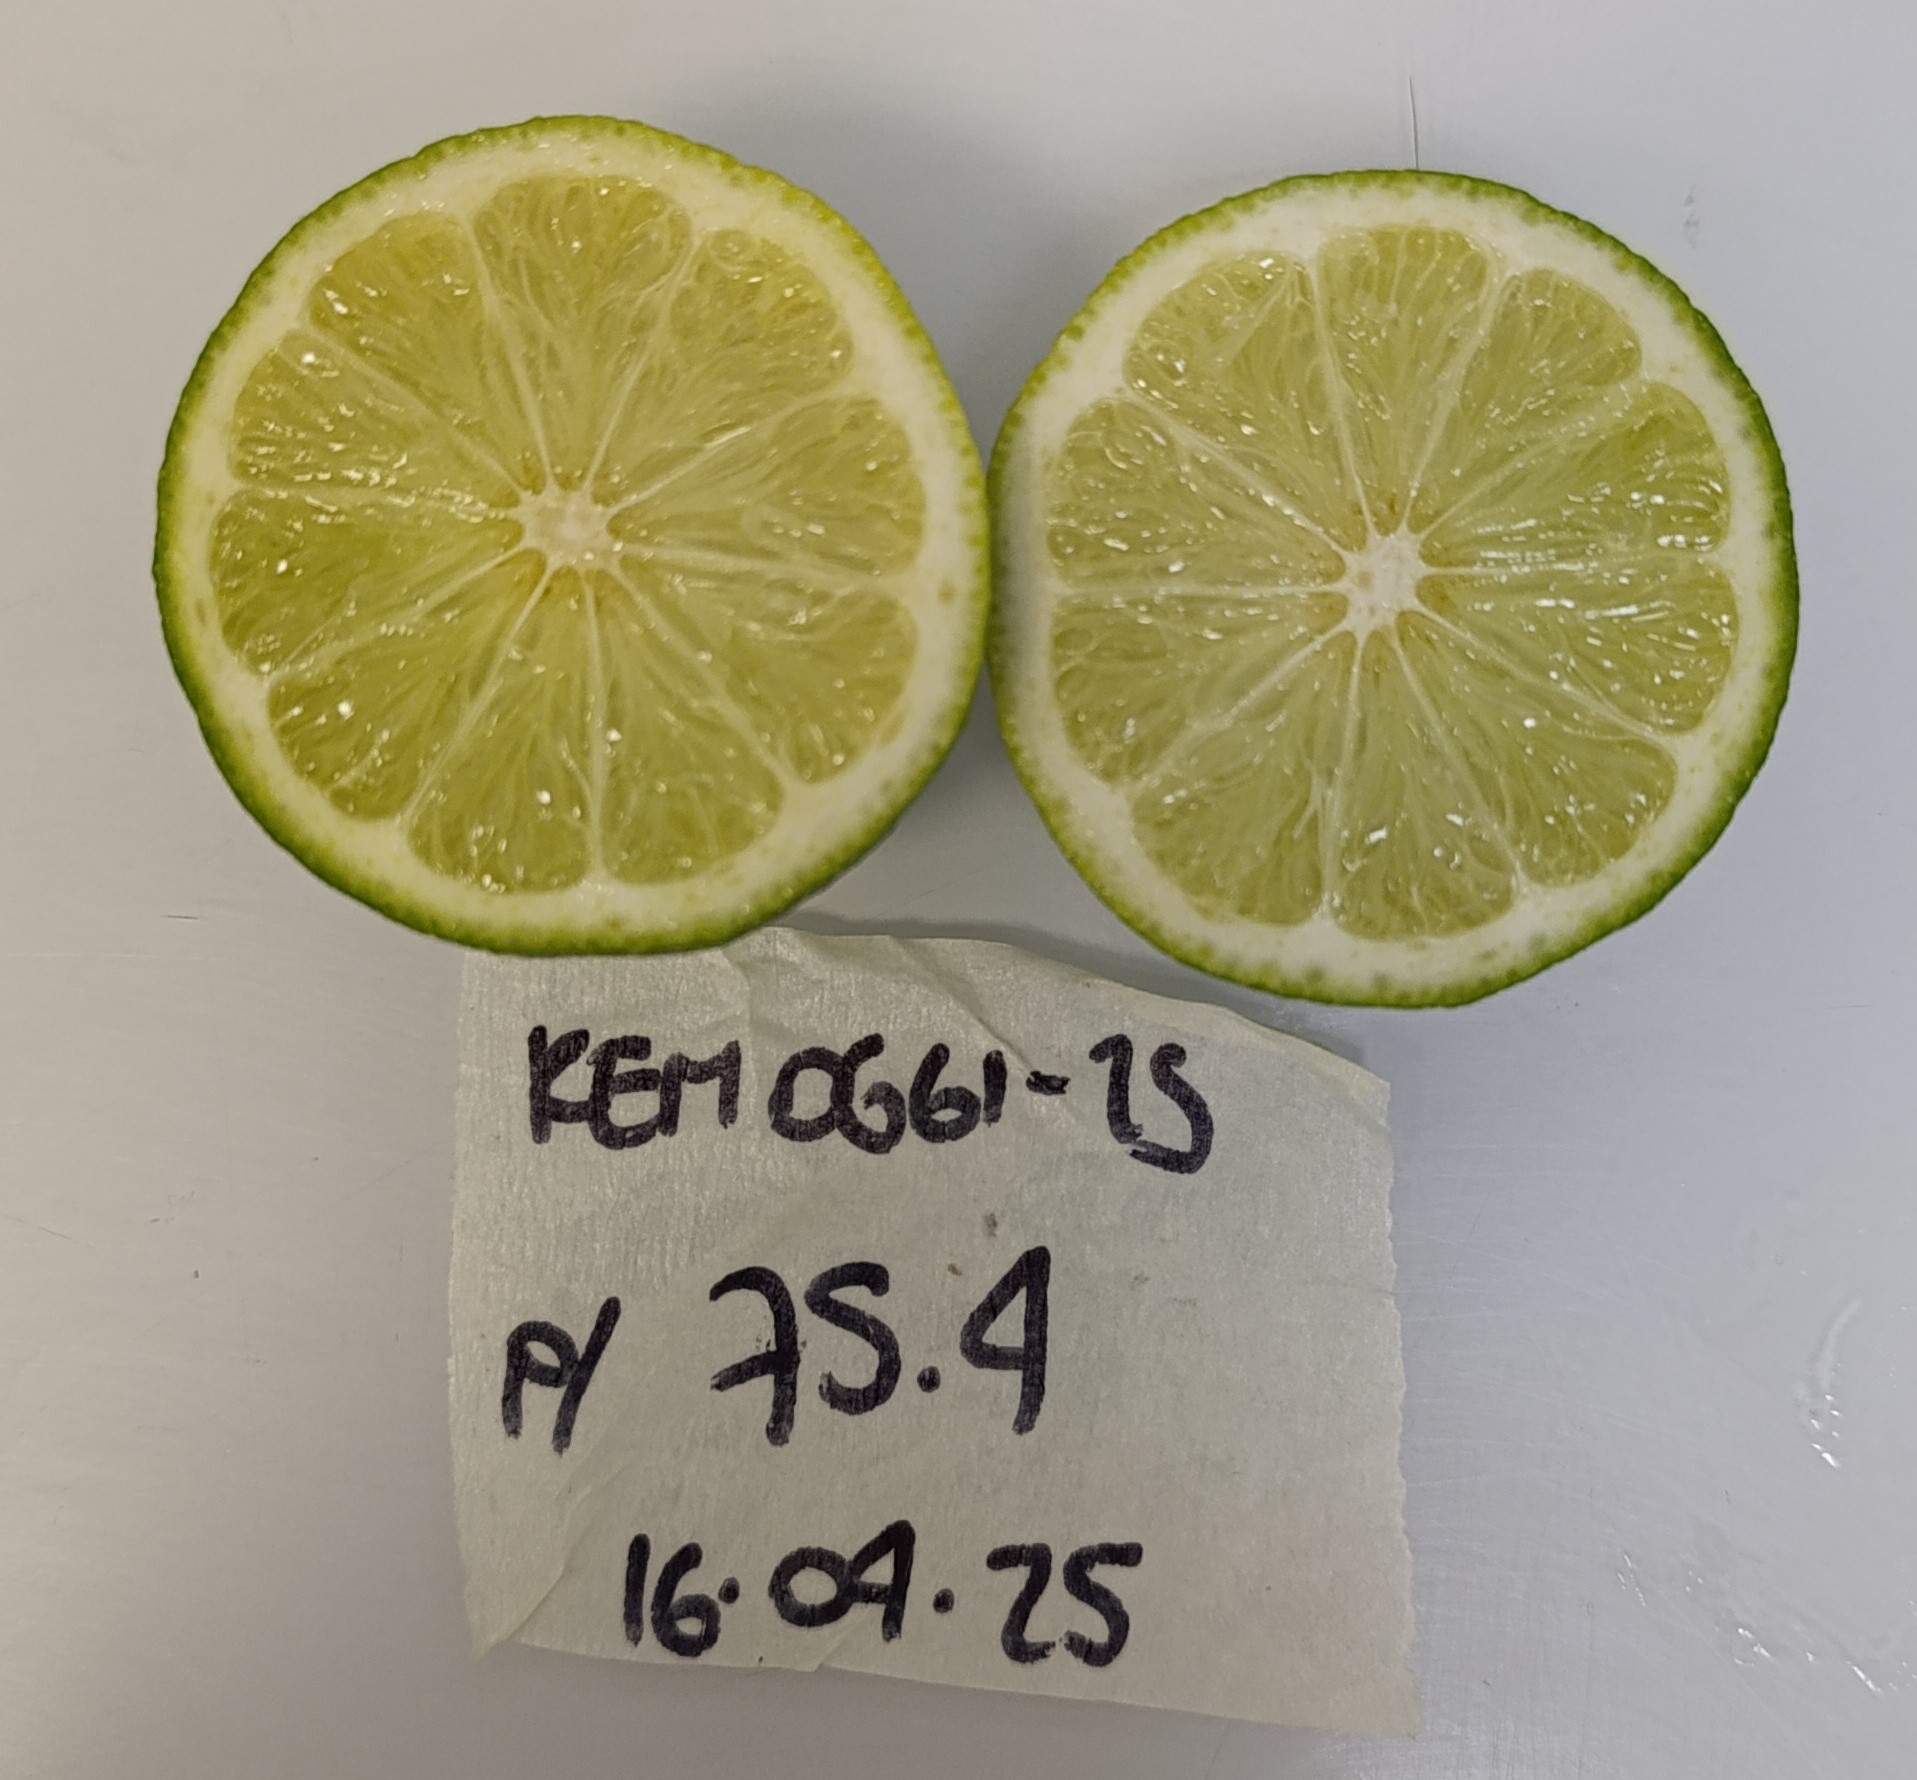 KEM0661-25
P/ 75.4
16.04.25